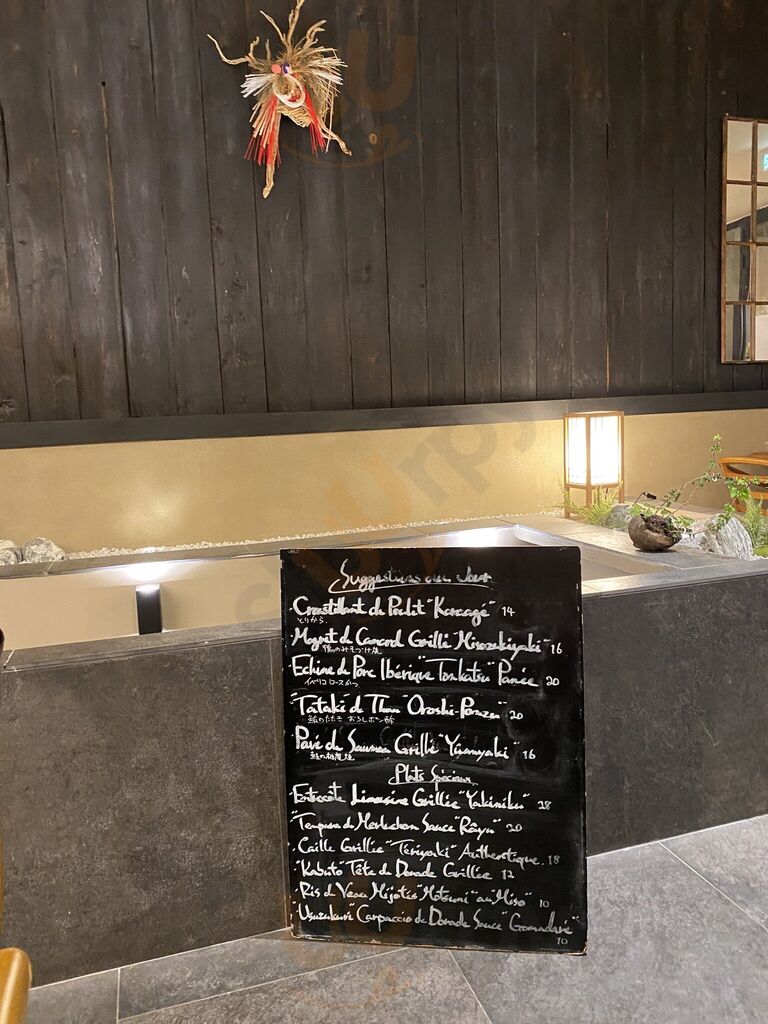 Suggestions du Jour
Croustillant de Poulet "Karaagé" 14
とりから
Magret de Canard Grillé "Misozukiyaki" 16
鴨のみそづけ焼
Echine de Porc Ibérique "Tonkatsu" Panée 20
イベリコロースかつ
"Tataki" de Thon "Oroshi-Ponzu" 20
鮪のたたき おろしポン酢
Pavé de Saumon Grillé "Yuanyaki" 16
鮭の柚庵焼
Plats Spéciaux
Entrecôte Limousine Grillée "Yakiniku" 28
"Tempura de Merluchon Sauce "Râyu" 20
Caille Grillée "Teriyaki" Authentique. 18
"Kabuto" Tête de Dorade Grillée 12
Ris de Veau Mijotés "Motsuni" au Miso" 10
"Usuzukuri" Carpaccio de Dorade Sauce "Gomadaré"
10